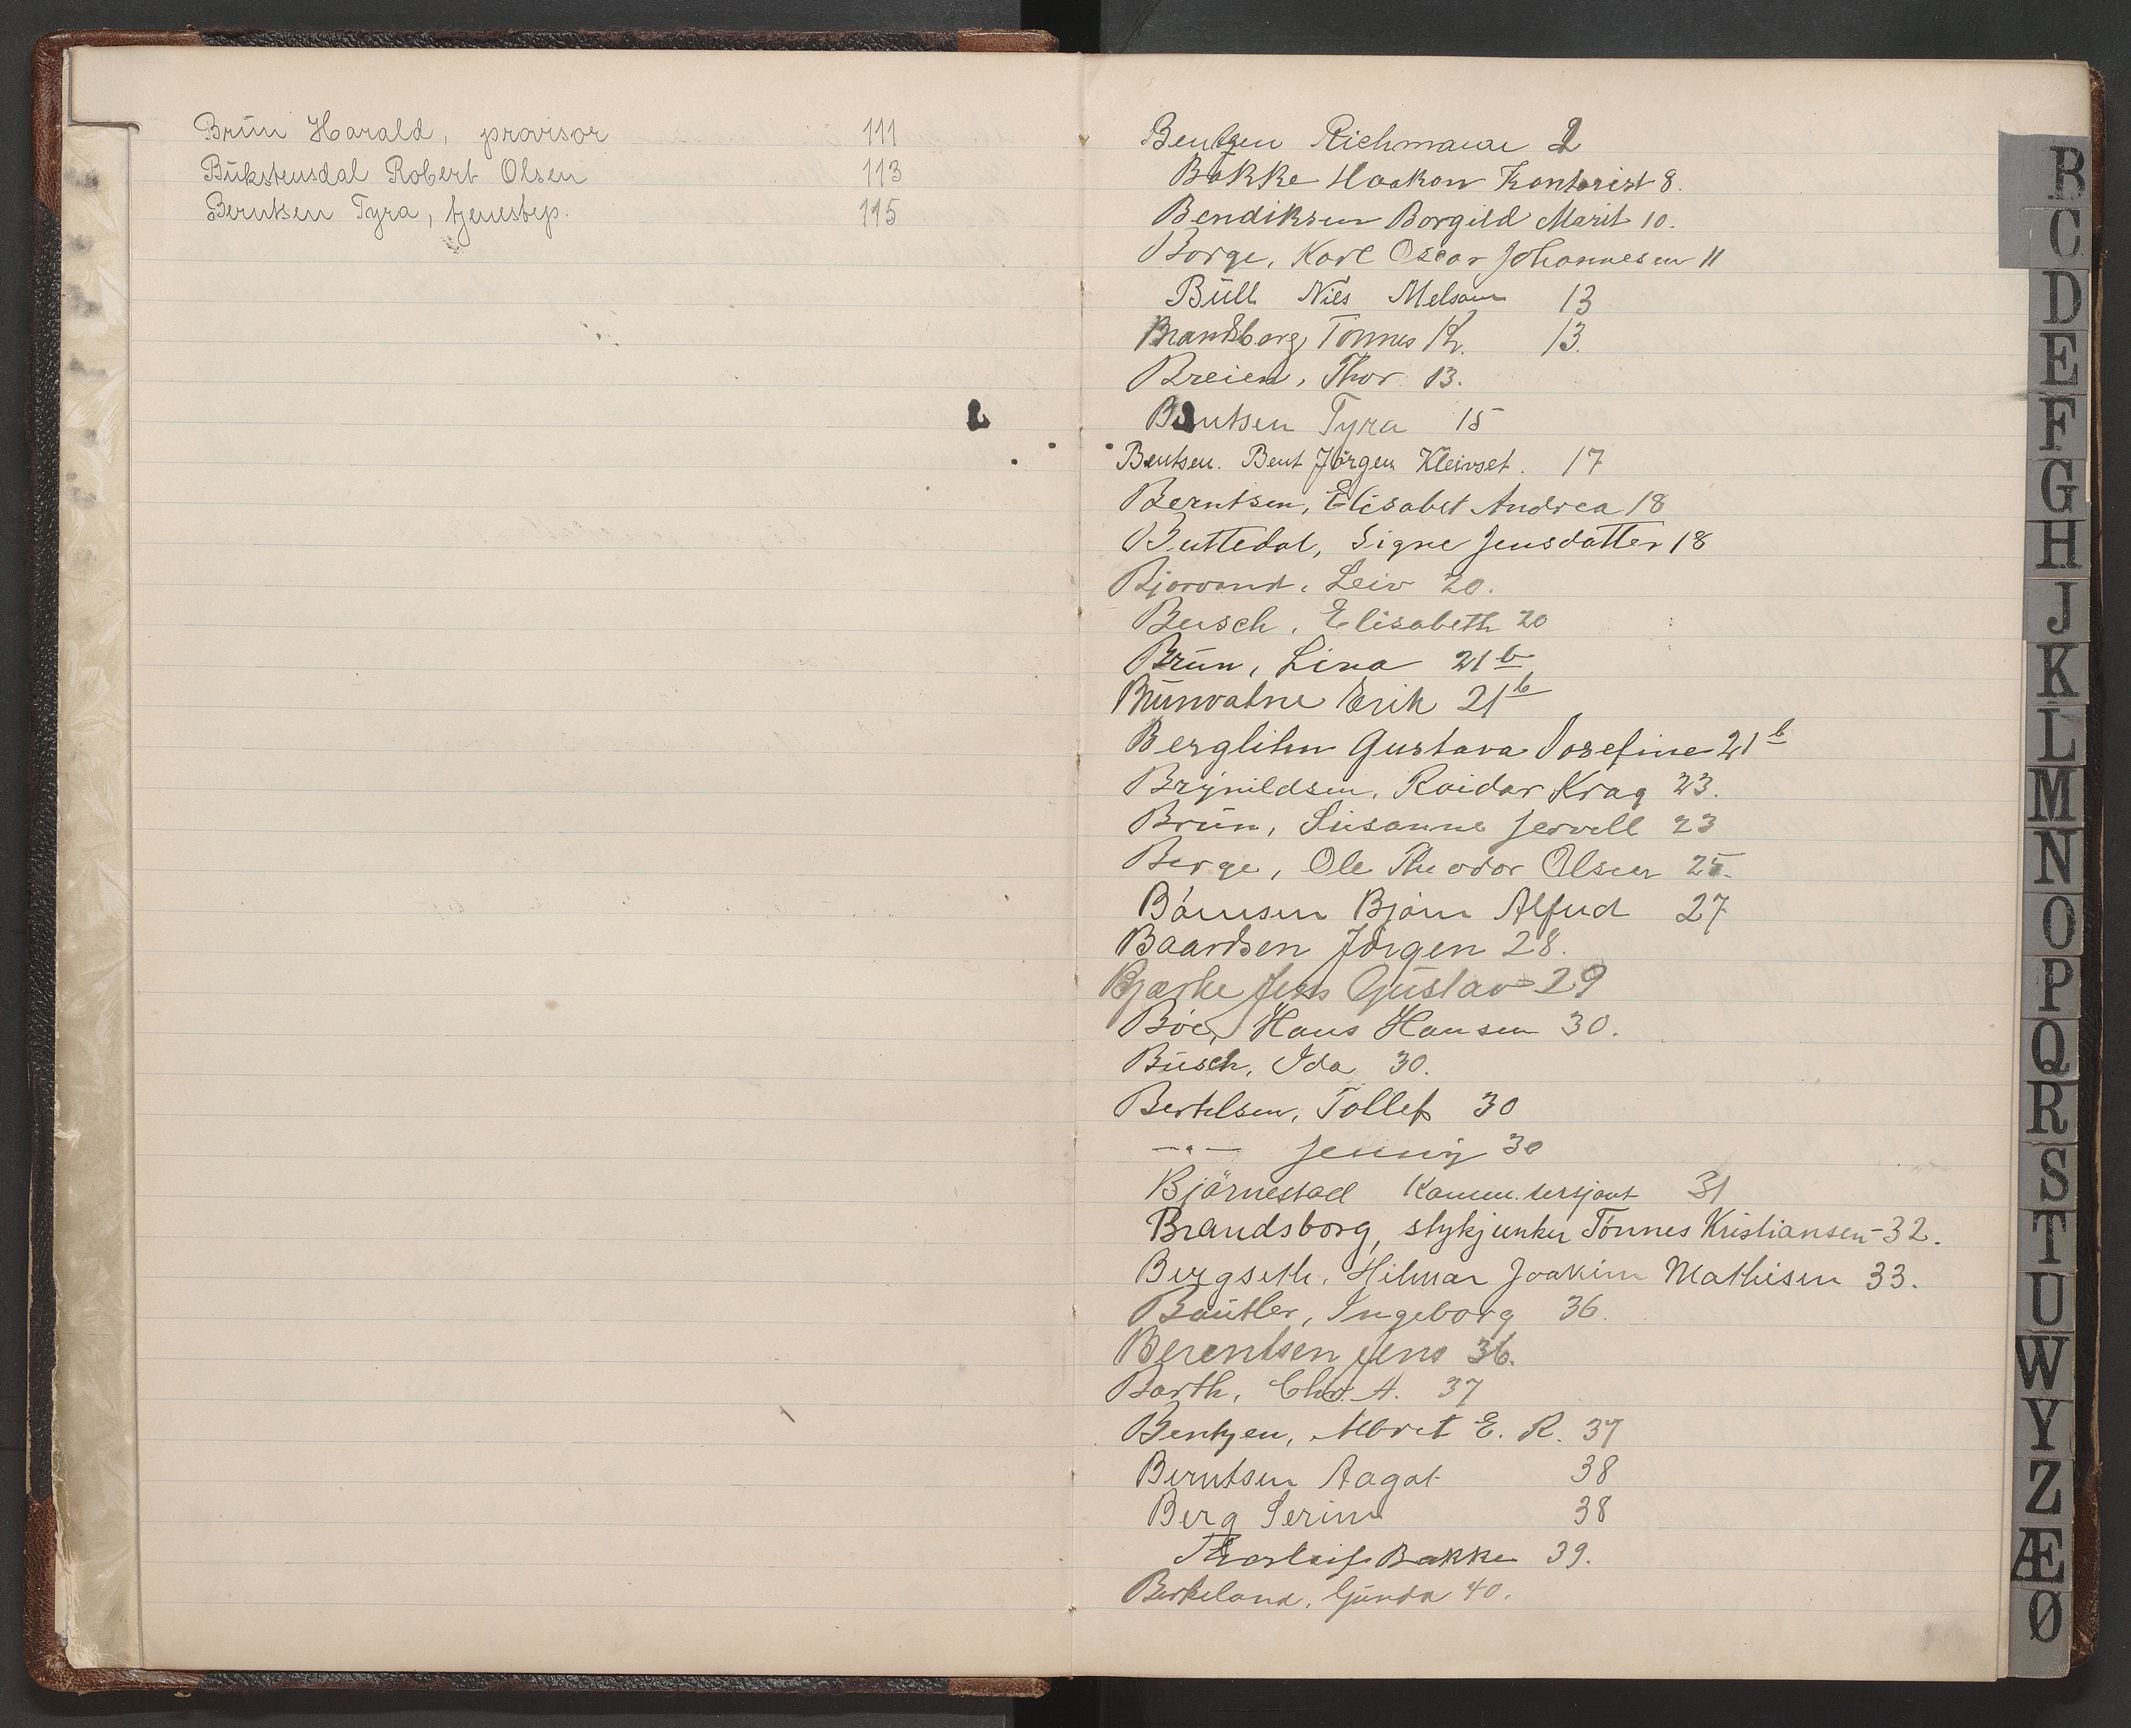 Brün Harald, provisor 111
Bukstensdal Robert Olsen 113
Berntsen Tyra, tjenestep. 115
Bentzen Richmann 2
Bakke Haakon Kontorist 8.
Bendiksen Borgild Marit 10.
Borge, Karl Oscar Johannesen 11
Büll Nils Melsom 13
Brandsborg Tønnes K. 13.
Breien, Thor 13.
Berntsen Tyra 15
Bentsen. Bent Jörgen Kleivset. 17
Berntsen, Elisabet Andrea 18
Buttedal, Signe Jensdatter 18
Bjorvand, Leiv 20.
Busch, Elisabeth 20
Brün, Lina 21 b
Brunvatne Erik 21 b
Berglihn Gustava Josefine 21 b
Brynildsen, Reidar Krag 23.
Brün, Susanne Jervell 23
Berge, Ole Theodor Olsen 25.
Bjørn Alfred 27
Baardsen Jörgen 28.
Bjerke Jens Gustav 29
Böe, Hans Hansen 30.
Büsch, Ida 30.
Bertelsen, Tollef 30
—"— Jenny 30
Björnestad Komm. sersjant 31
Brandsborg, stykjunker Tönnes Kristiansen - 32.
Bergseth, Hilmar Joakim Mathisen 33.
Bautler, Ingeborg 36.
Berentsen Jens 36.
Barth, Chr. A. 37
Bentzen, Albret E. R. 37
Berntsen Aagot 38
Berg Serine 38
Thorleif Bakke 39.
Berkeland, Gunda 40.
B
C
D
E
F
G
H
J
K
L
M
N
O
P
Q
R
S
T
U
W
Y
Z
Æ
Ø